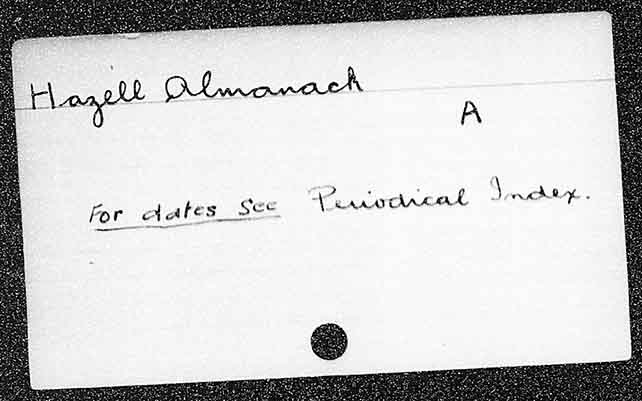 Hazell Almanach
A
For dates See Periodical Index.